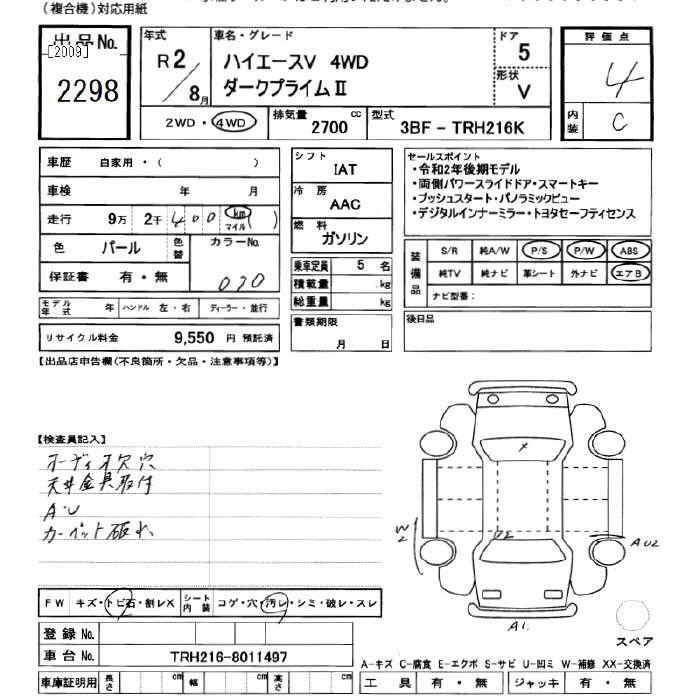 (複合機)対応用紙
出品No.
[2009]
2298
年式
R2/8月
車名・グレード
ハイエースV 4WD
ダークプライムⅡ
ドア
5
形状
V
2WD・4WD
排気量 2700 cc
型式 3BF - TRH216K
評価点
4
内装 C
車歴 自家用・( )
車検 年 月
走行 9万 2千 400 km マイル ( )
色 パール 色替
カラーNo.
070
保証書 有・無
モデル年式 年 ハンドル 左・右 ディーラー・並行
リサイクル料金 9,550 円 預託済
シフト
IAT
冷房
AAC
燃料
ガソリン
乗車定員 5 名
積載量 kg
総重量 kg
書類期限
月 日
セールスポイント
・令和2年後期モデル
・両側パワースライドドア・スマートキー
・プッシュスタート・パノラミックビュー
・デジタルインナーミラー・トヨタセーフティセンス
装備品
S/R 純A/W P/S P/W ABS
純TV 純ナビ 革シート 外ナビ エアB
ナビ型番:
後日品
【出品店申告欄(不良箇所・欠品・注意事項等)】
【検査員記入】
オーディオ欠 穴
天井金具取付
A・U
カーペット破れ
W2
U2
AU2
A1.
FW キズ・トビ石・割レX シート内装 コゲ・穴・汚レ・シミ・破レ・スレ
登録No.
車台No. TRH216-8011497
車庫証明用 長さ cm 幅 cm 高さ cm
スペア
A-キズ C-腐食 E-エクボ S-サビ U-凹ミ W-補修 XX-交換済
工具 有・無 ジャッキ 有・無